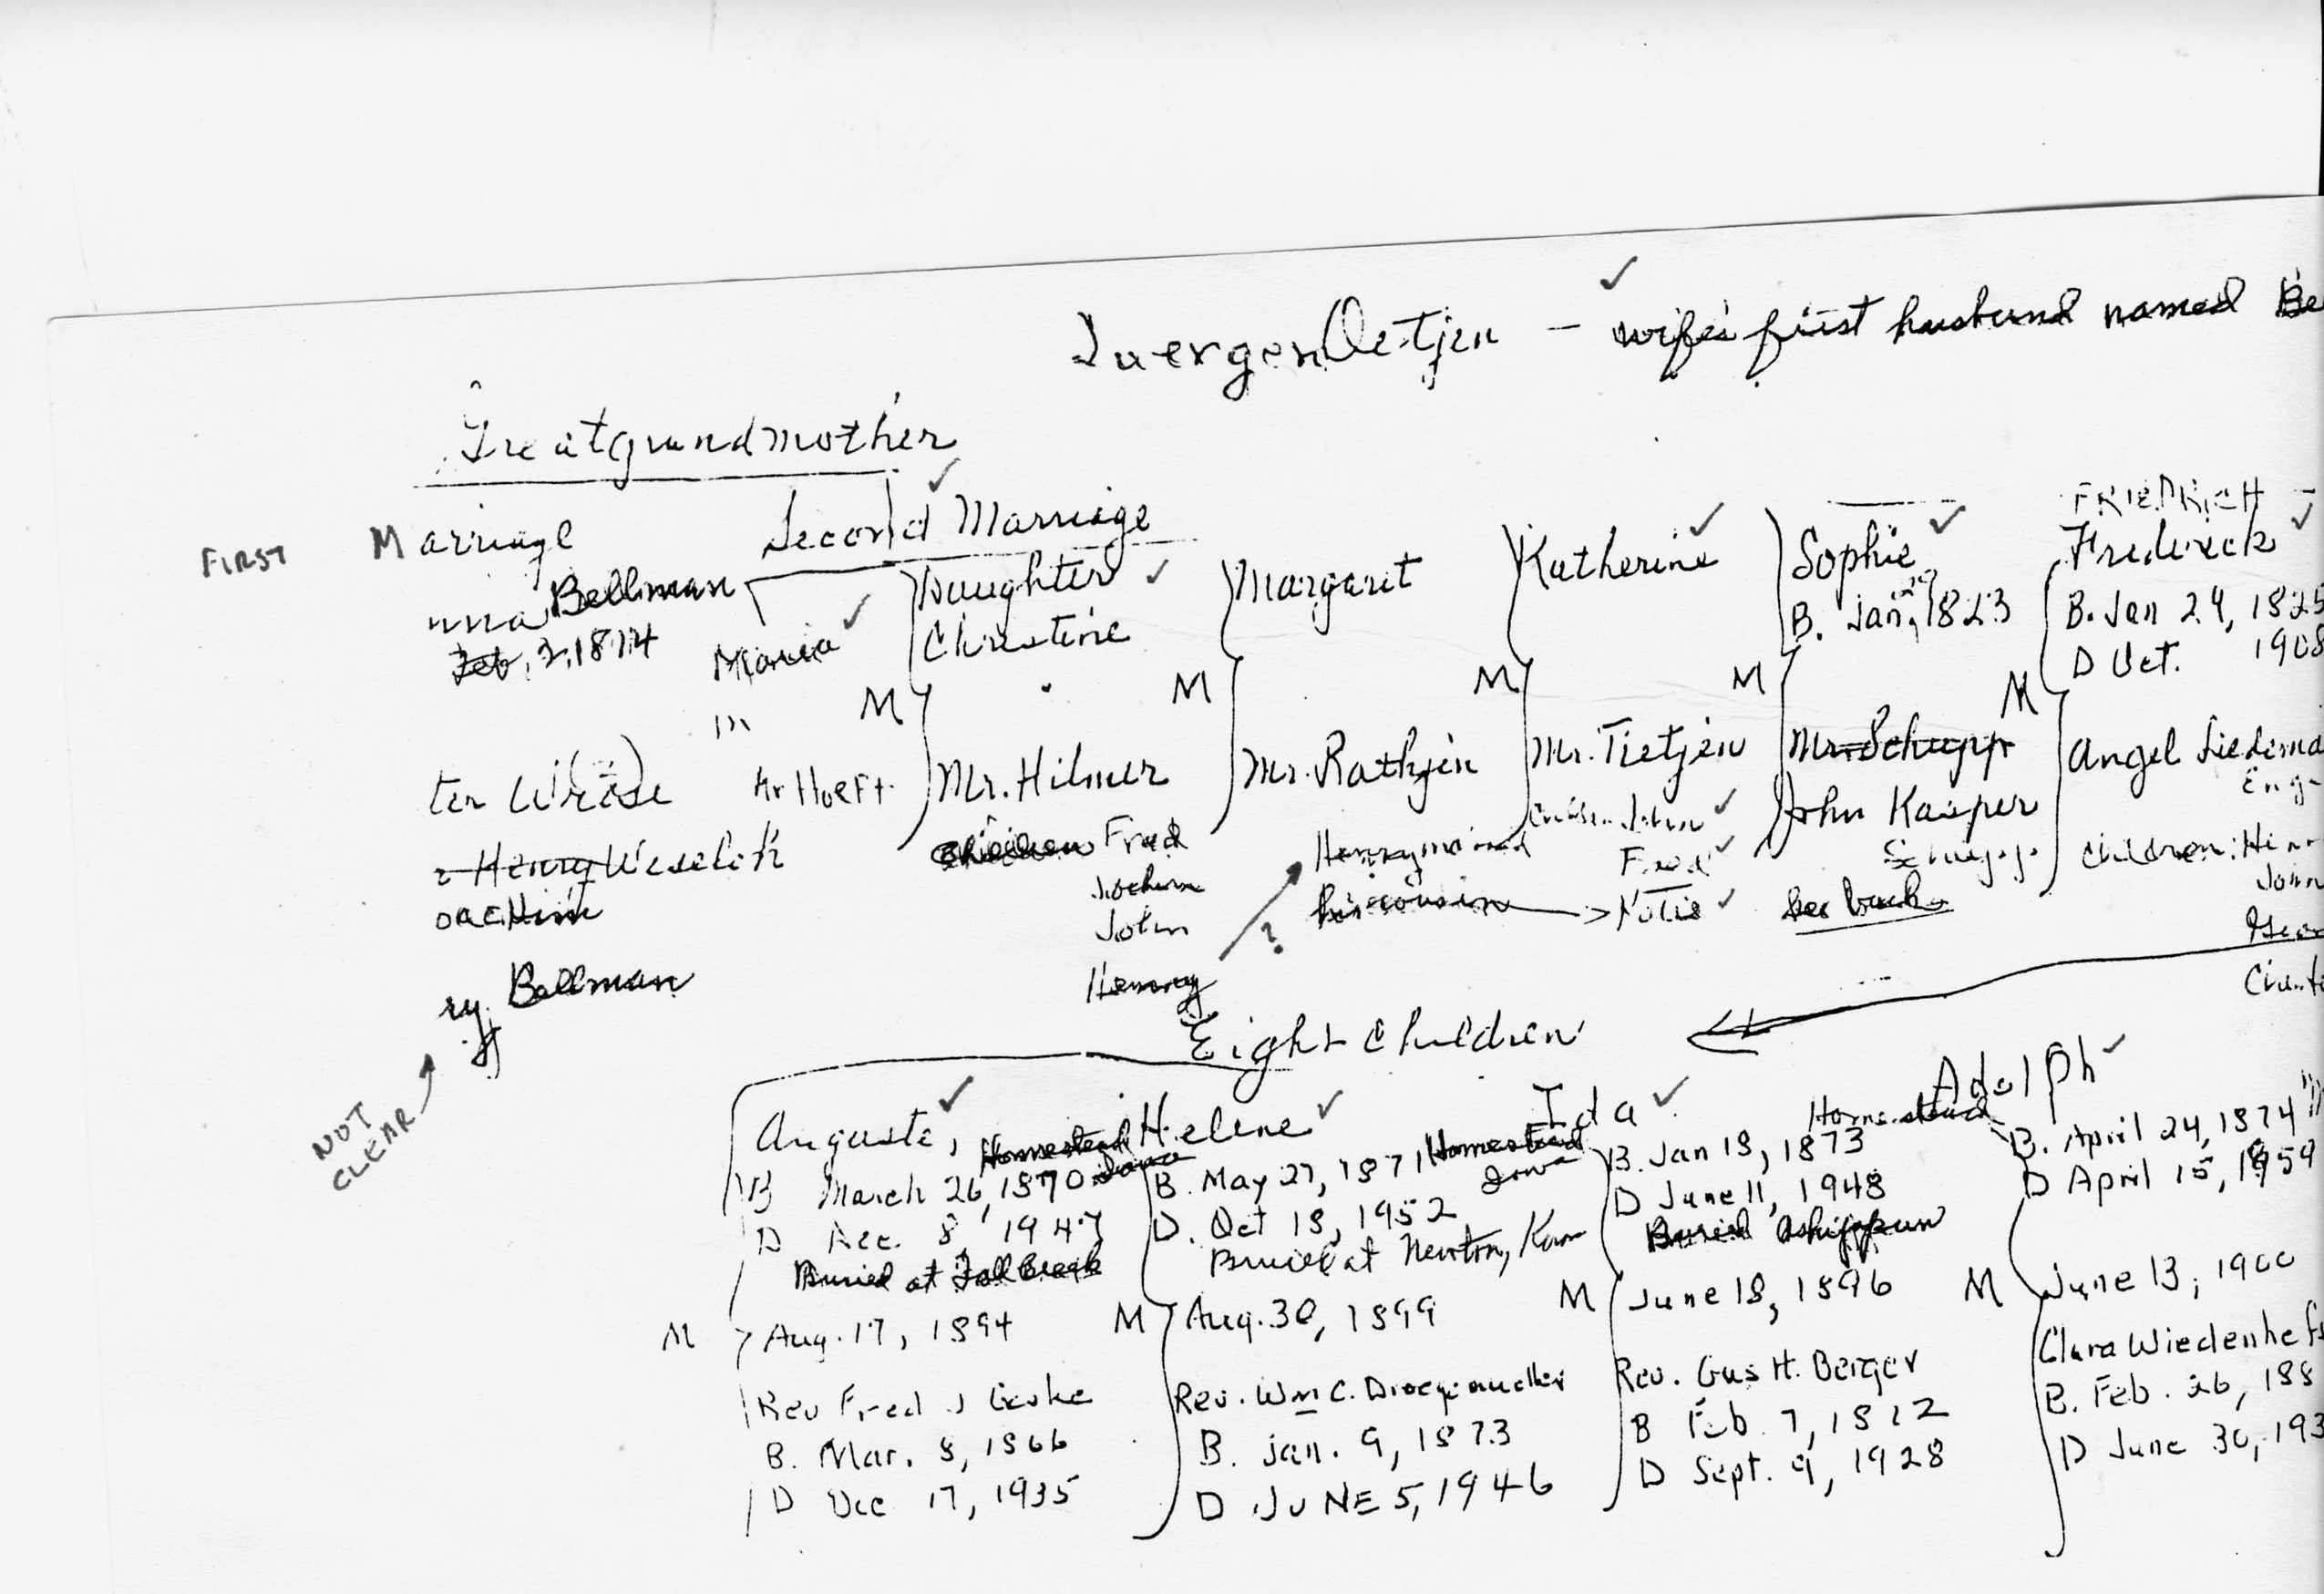 Juergen Oetjen - wife's first husband named Be
Greatgrandmother
FIRST Marriage
Second Marriage
nna Bellman
Feb. 2, 1814
Maria
m
Mr Hoeft
Daughter
Christine
M
Mr. Hilmer
Children Fred
Jochim
John
Henry
Margaret
M
Mr. Rathjen
Henry married
his cousin
?
Katherine
M
Mr. Tietjen
Children John
Fred
Sophie
B. Jan, 1823
M
Mr. Schupp
John Kasper
Schupp
See back
FRIEDRICH -
Frederick
B. Jan 24, 1825
D Oct. 1908
M
Angel
Eng-
Children: Hen
John
Geo
ter
Henry
ry. Bellman
NOT
CLEAR
Eight Children
Auguste, Homestead
Iowa
B March 26, 1870
D Dec. 8, 1947
Buried at Fall Creek
M Aug. 17, 1894
Rev Fred J
B. Mar. 8, 1866
D Dec 17, 1935
Helene Homestead
Iowa
B. May 27, 1871
D. Oct 18, 1952
Buried at Newton, Kan
M Aug. 30, 1899
Rev. Wm C. Droegemueller
B. Jan. 9, 1873
D JUNE 5, 1946
Ida
B. Jan 13, 1873
D June 11, 1948
Buried Ashippun
M June 18, 1896
Rev. Gus H. Berger
B Feb. 7, 1872
D Sept. 9, 1928
Homestead Adolph
B. April 24, 1874
D April 15, 1959
M June 13, 1900
Clara Wiedenhef
B. Feb. 26, 188
D June 30, 193